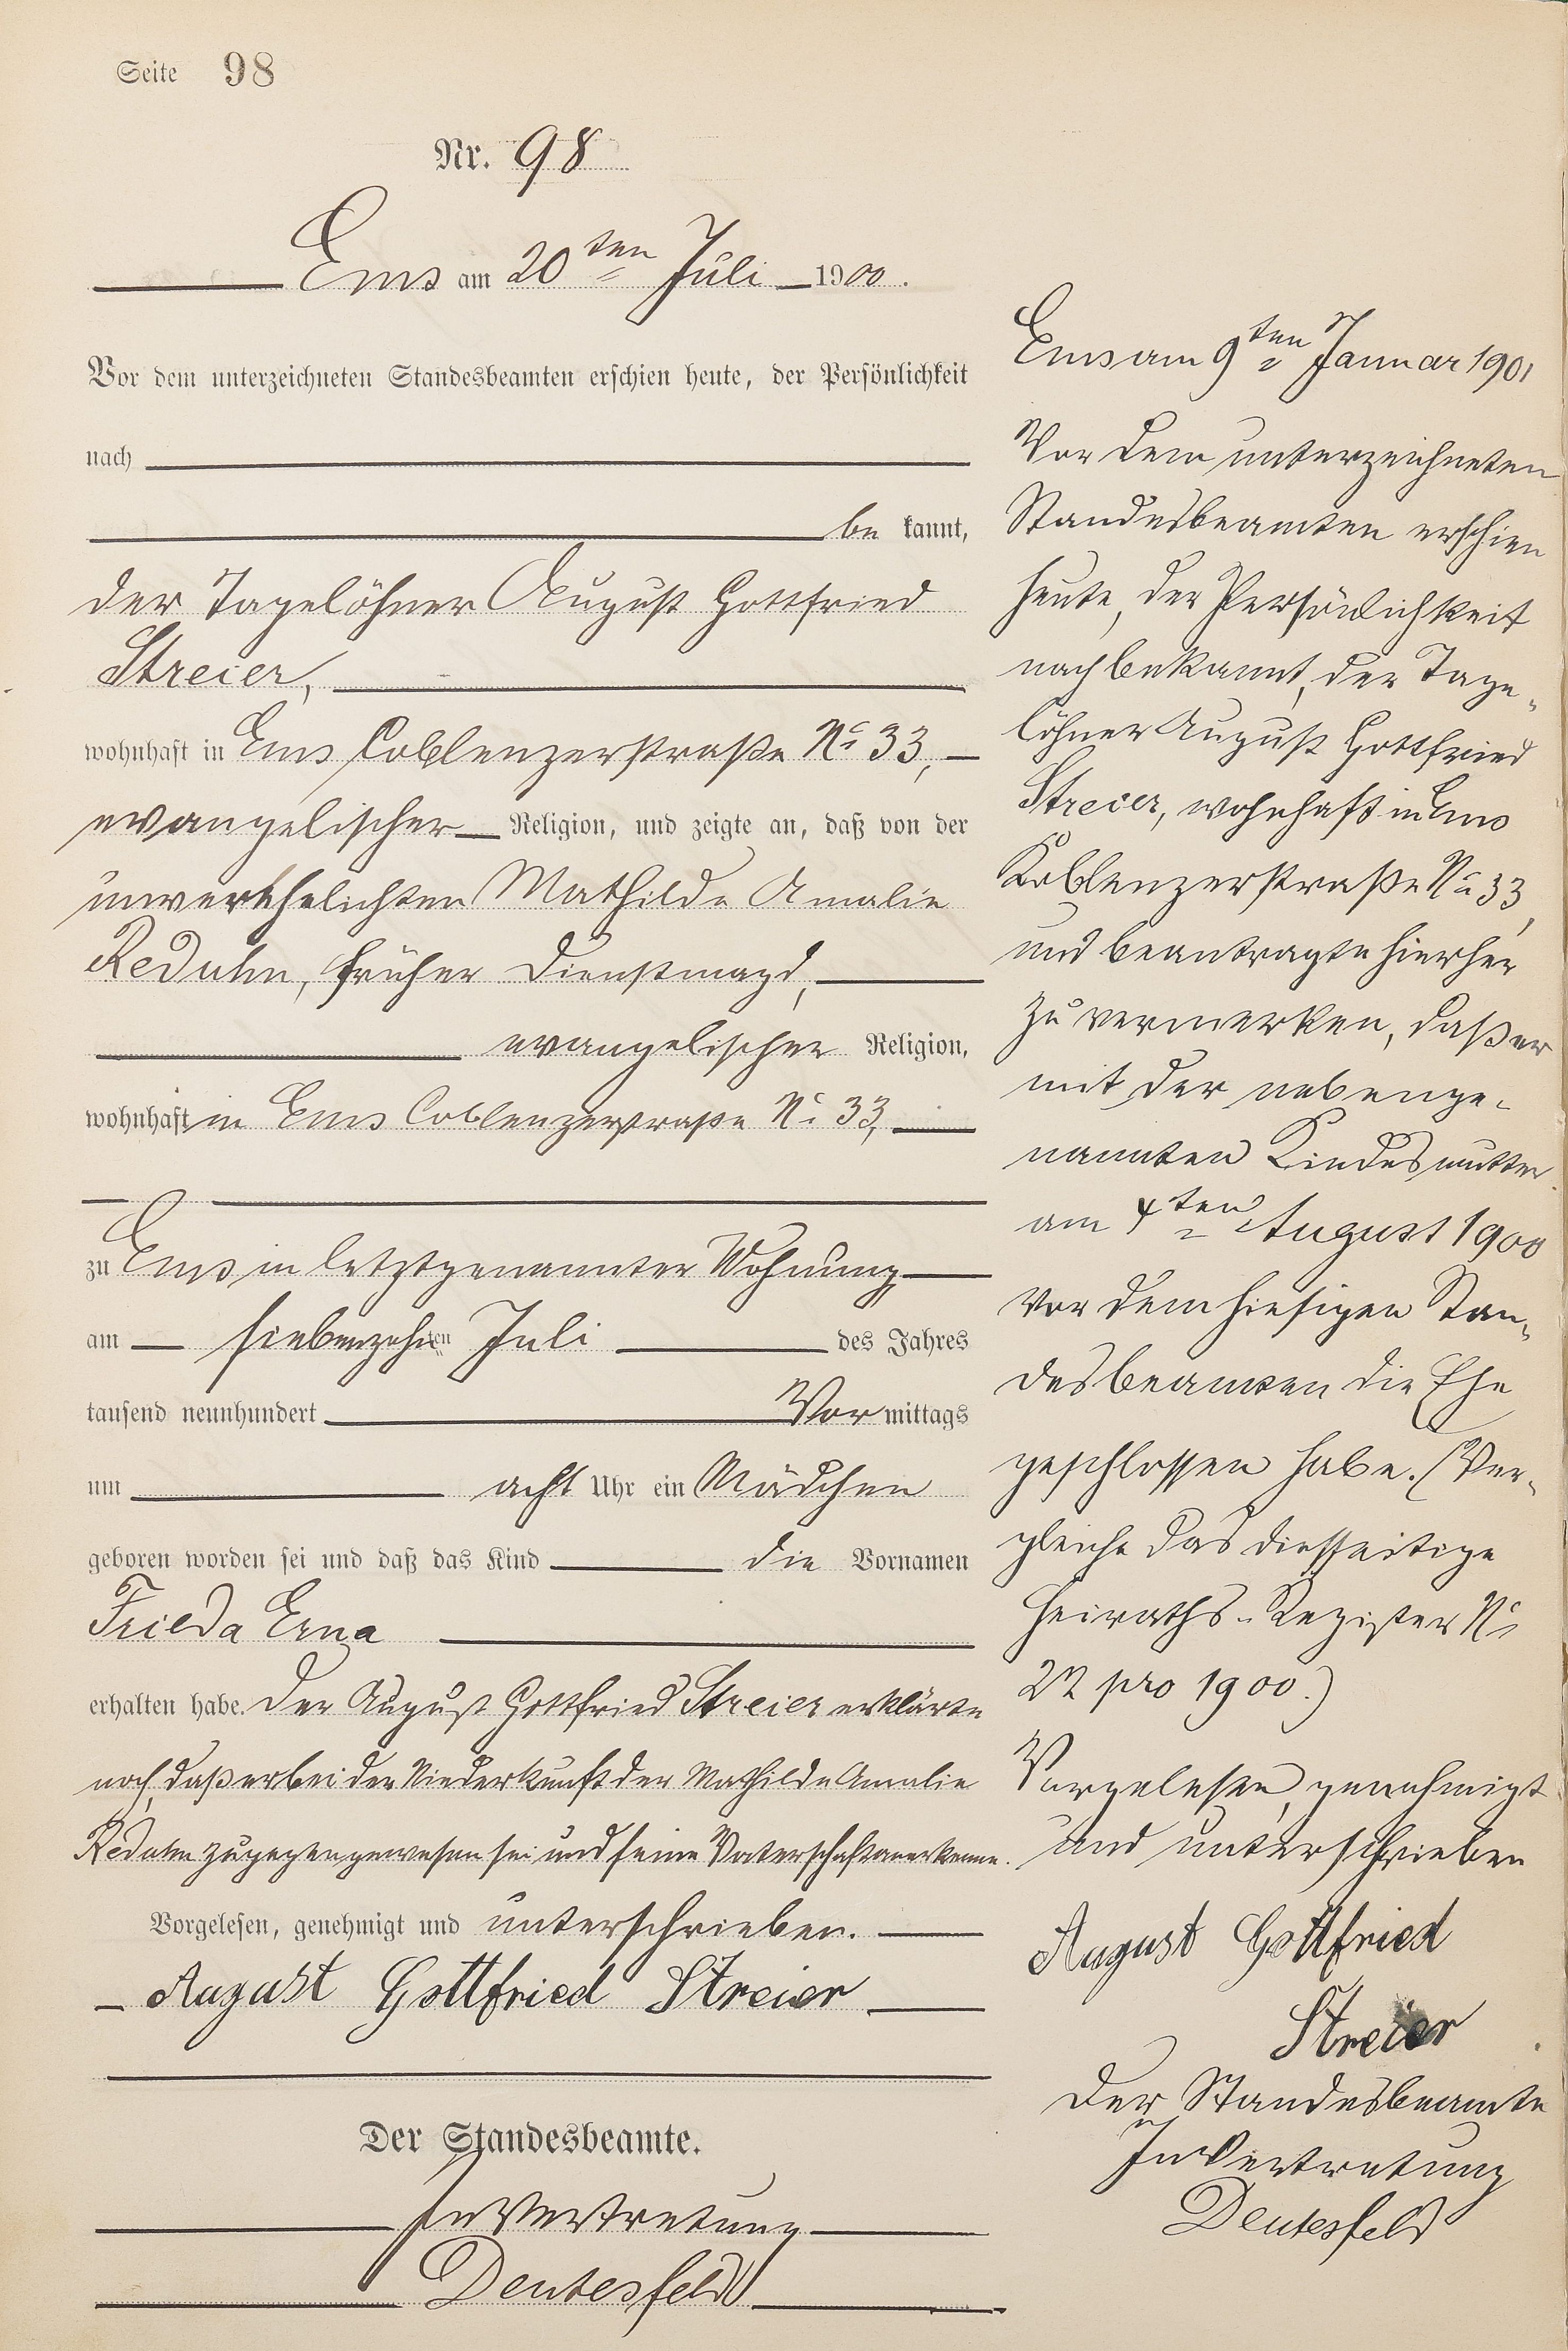 Seite 98
Nr. 98
Ems am 20ten Juli 1900.
Vor dem unterzeichneten Standesbeamten erschien heute, der Persönlichkeit
nach
be kannt,
der Tagelöhner August Gottfried
Streier,
wohnhaft in Ems Coblenzerstraße No 33,
evangelischer Religion, und zeigte an, daß von der
unverehelichten Mathilde Amalie
Reduhn, früher Dienstmagd,
evangelischer Religion,
wohnhaft in Ems Coblenzerstraße No 33,
zu Ems in letztgenannter Wohnung
am siebenzehnten Juli des Jahres
tausend neunhundert Vor mittags
um acht Uhr ein Mädchen
geboren worden sei und daß das Kind die Vornamen
Frieda Erna
erhalten habe. Der August Gottfried Streier erklärte
noch, daß er bei der Niederkunft der Mathilde Amalie
Reduhn zugegen gewesen sei und seine Vaterschaft anerkenne.
Vorgelesen, genehmigt und unterschrieben.
August Gottfried Streier
Der Standesbeamte.
In Vertretung
Deutesfeld
Ems am 9ten Januar 1901
Vor dem unterzeichneten
Standesbeamten erschien
heute, der Persönlichkeit
nach bekannt, der Tage-
löhner August Gottfried
Streier, wohnhaft in Ems
Koblenzerstraße No 33,
und beantragte hierher
zu vermerken, daß er
mit der nebenge-
nannten Kindesmutter
am 4ten August 1900
vor dem hiesigen Stan-
desbeamten die Ehe
geschlossen habe. (Ver-
gleiche das diesseitige
Heiraths-Register No
22 pro 1900.)
Vorgelesen, genehmigt
und unterschrieben
August Gottfried
Streier
Der Standesbeamte
In Vertretung
Deutesfeld